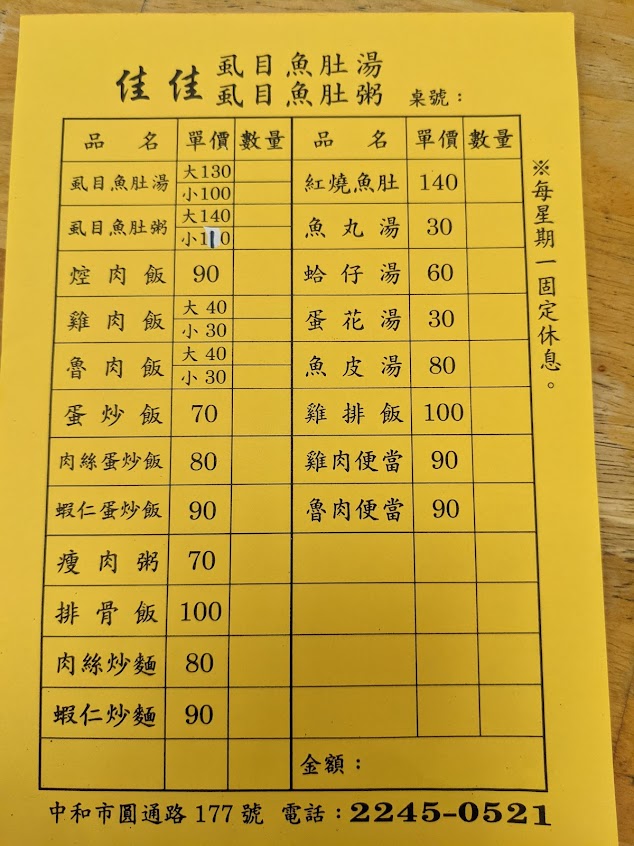 佳佳 虱目魚肚湯
虱目魚肚粥 桌號：
品名 單價 數量 品名 單價 數量
虱目魚肚湯 大130 紅燒魚肚 140
小100
虱目魚肚粥 大140 魚丸湯 30
小110
焢肉飯 90 蛤仔湯 60
雞肉飯 大 40 蛋花湯 30
小 30
魯肉飯 大 40 魚皮湯 80
小 30
蛋炒飯 70 雞排飯 100
肉絲蛋炒飯 80 雞肉便當 90
蝦仁蛋炒飯 90 魯肉便當 90
瘦肉粥 70
排骨飯 100
肉絲炒麵 80
蝦仁炒麵 90
金額：
※每星期一固定休息。
中和市圓通路 177 號 電話：2245-0521